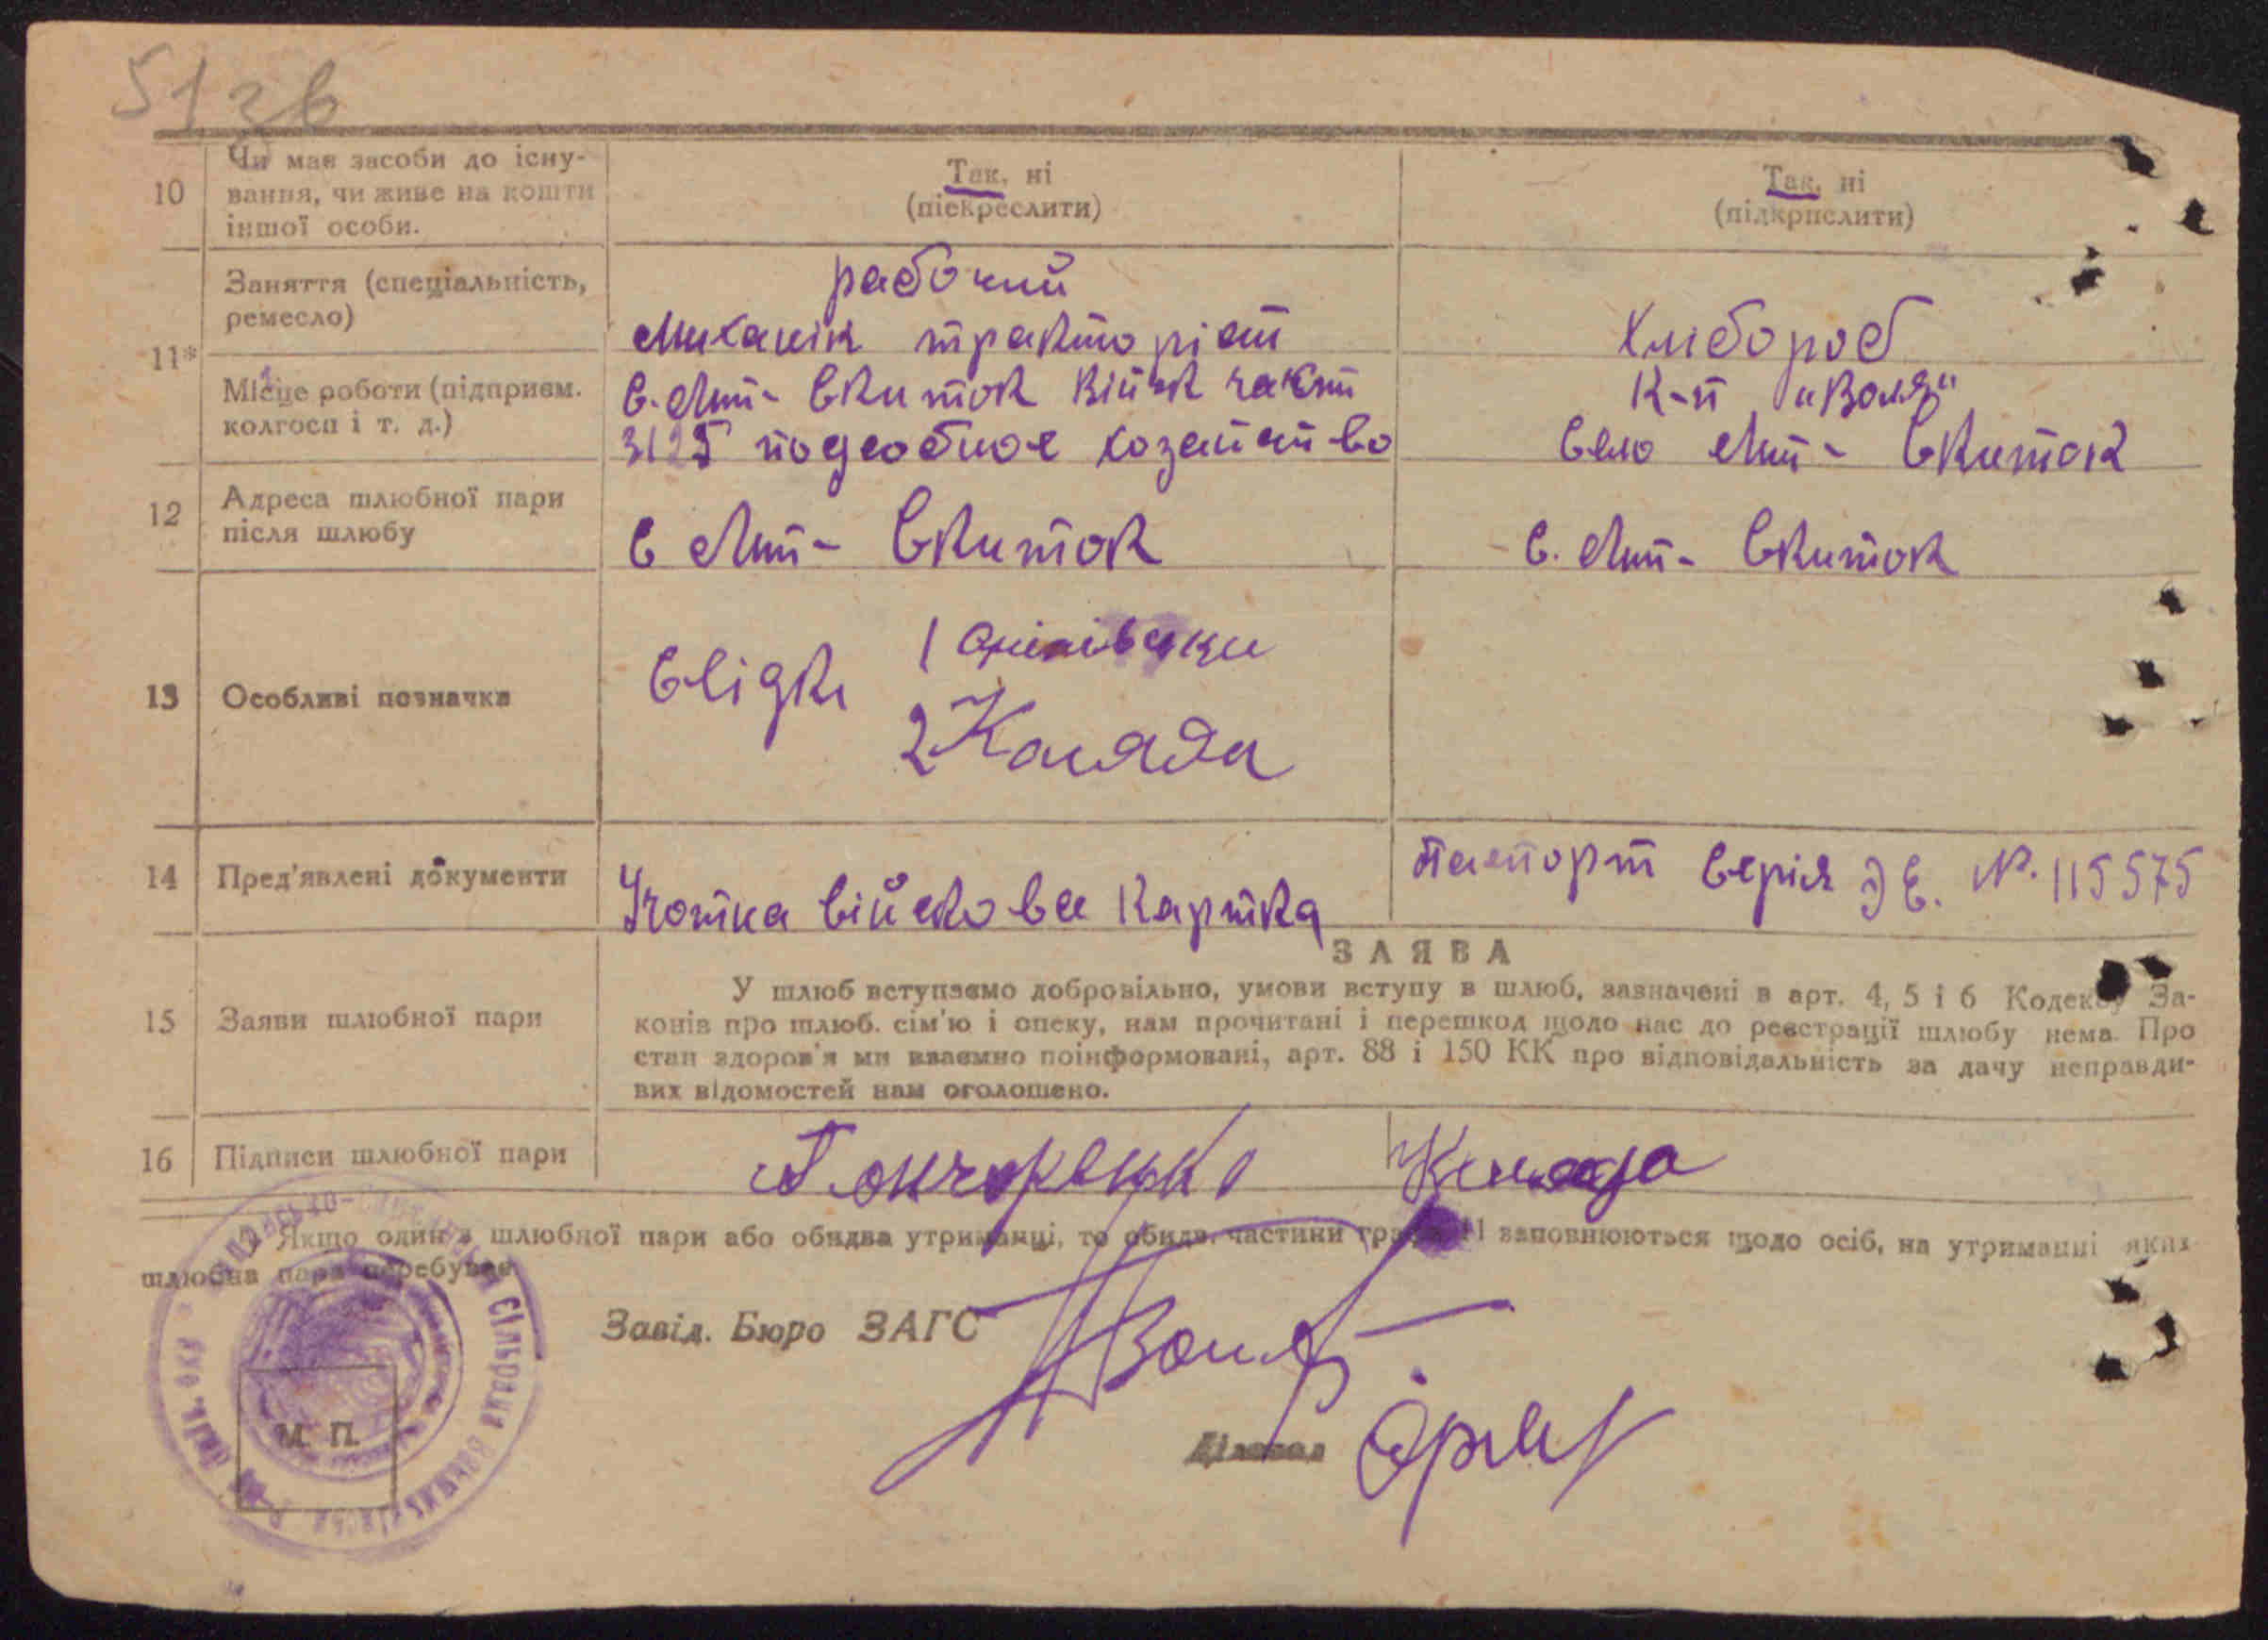 51 зв
10 Чи має засоби до існу-
вання, чи живе на кошти
іншої особи.
Так, ні
(піскреслити)
Так, ні
(підкрислити)
11*
Заняття (спеціальність,
ремесло)
рабочий
Миханік тракторіст
Хлібороб
Місце роботи (підприєм.
колгосп і т. д.)
с. Мит- Скиток Війск части
3125 подсобное хозяйство
К-п "Воля"
село Мит- Скиток
12 Адреса шлюбної пари
після шлюбу
с Мит- Скиток
с. Мит- Скиток
13 Особливі позначки
Свідки 1
2 Каляда
14 Пред'явлені документи
Учотна війскова картка
Паспорт серія ЭЕ. №. 115575
15 Заяви шлюбної пари
ЗАЯВА
У шлюб вступаємо добровільно, умови вступу в шлюб, зазначені в арт. 4, 5 і 6 Кодексу За-
конів про шлюб. сім'ю і опеку, нам прочитані і перешкод щодо нас до реєстрації шлюбу нема. Про
стан здоров'я ми взаємно поінформовані, арт. 88 і 150 КК про відповідальність за дачу неправди-
вих відомостей нам оголошено.
16 Підписи шлюбної пари
Гончаренко
*) Якщо один з шлюбної пари або обидва утриманці, то обидв. частини граф. 11 заповнюються щодо осіб, на утриманні яких
шлюбна пара перебуває
Завід. Бюро ЗАГС
М. П.
Діловод
сільрада